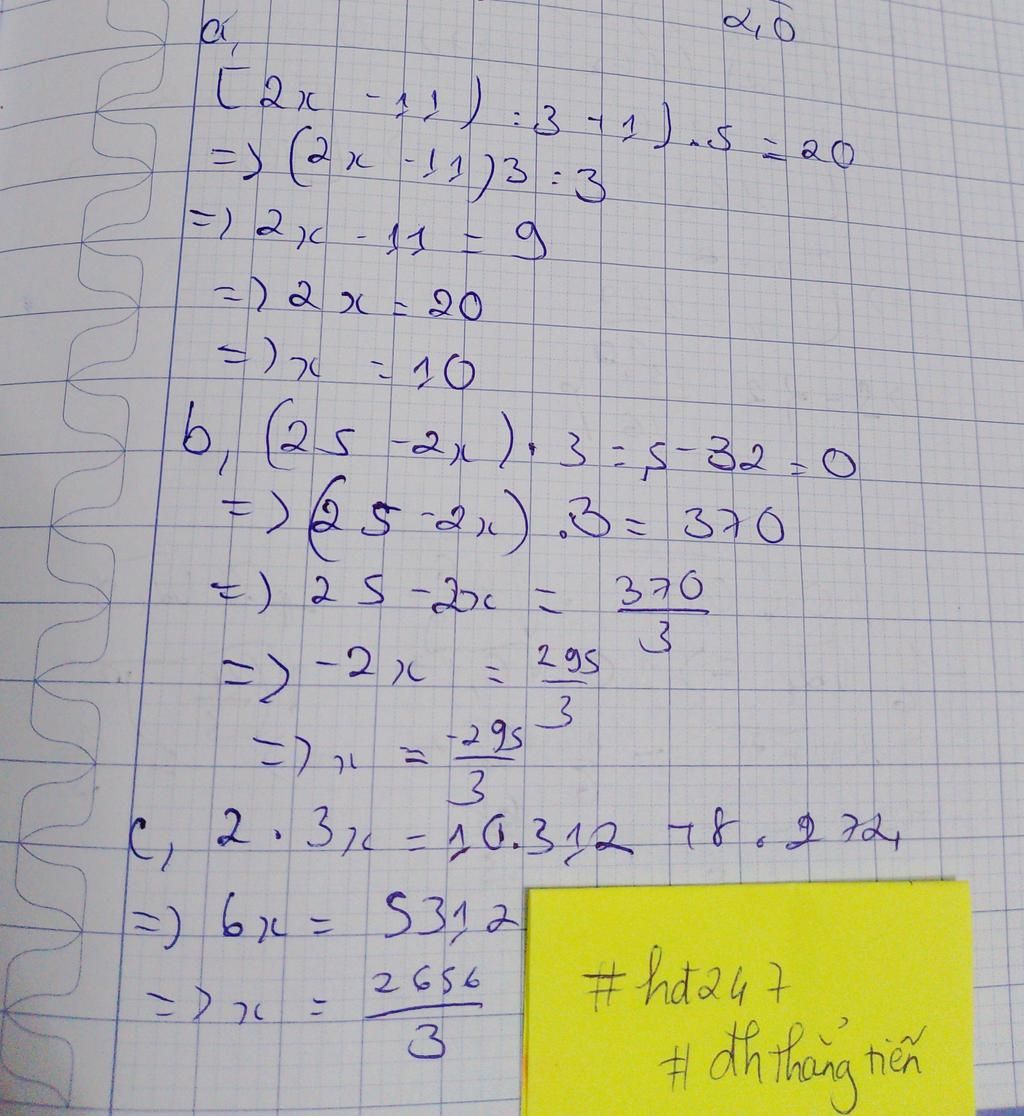 2,0
a,
[2x - 11) : 3 + 1) . 5 = 20
=> (2x - 11) 3 = 3
=> 2x - 11 = 9
=> 2x = 20
=> x = 10
b, (25 - 2x) . 3 = 5 - 32 = 0
=> (25 - 2x) . 3 = 370
=> 25 - 2x = 370/3
=> -2x = 295/3
=> x = -295/3
c, 2 . 3x = 10.312 + 8 . 272,
=> 6x = 5312
=> x = 2656/3
#hd247
# đhthẳngtiến